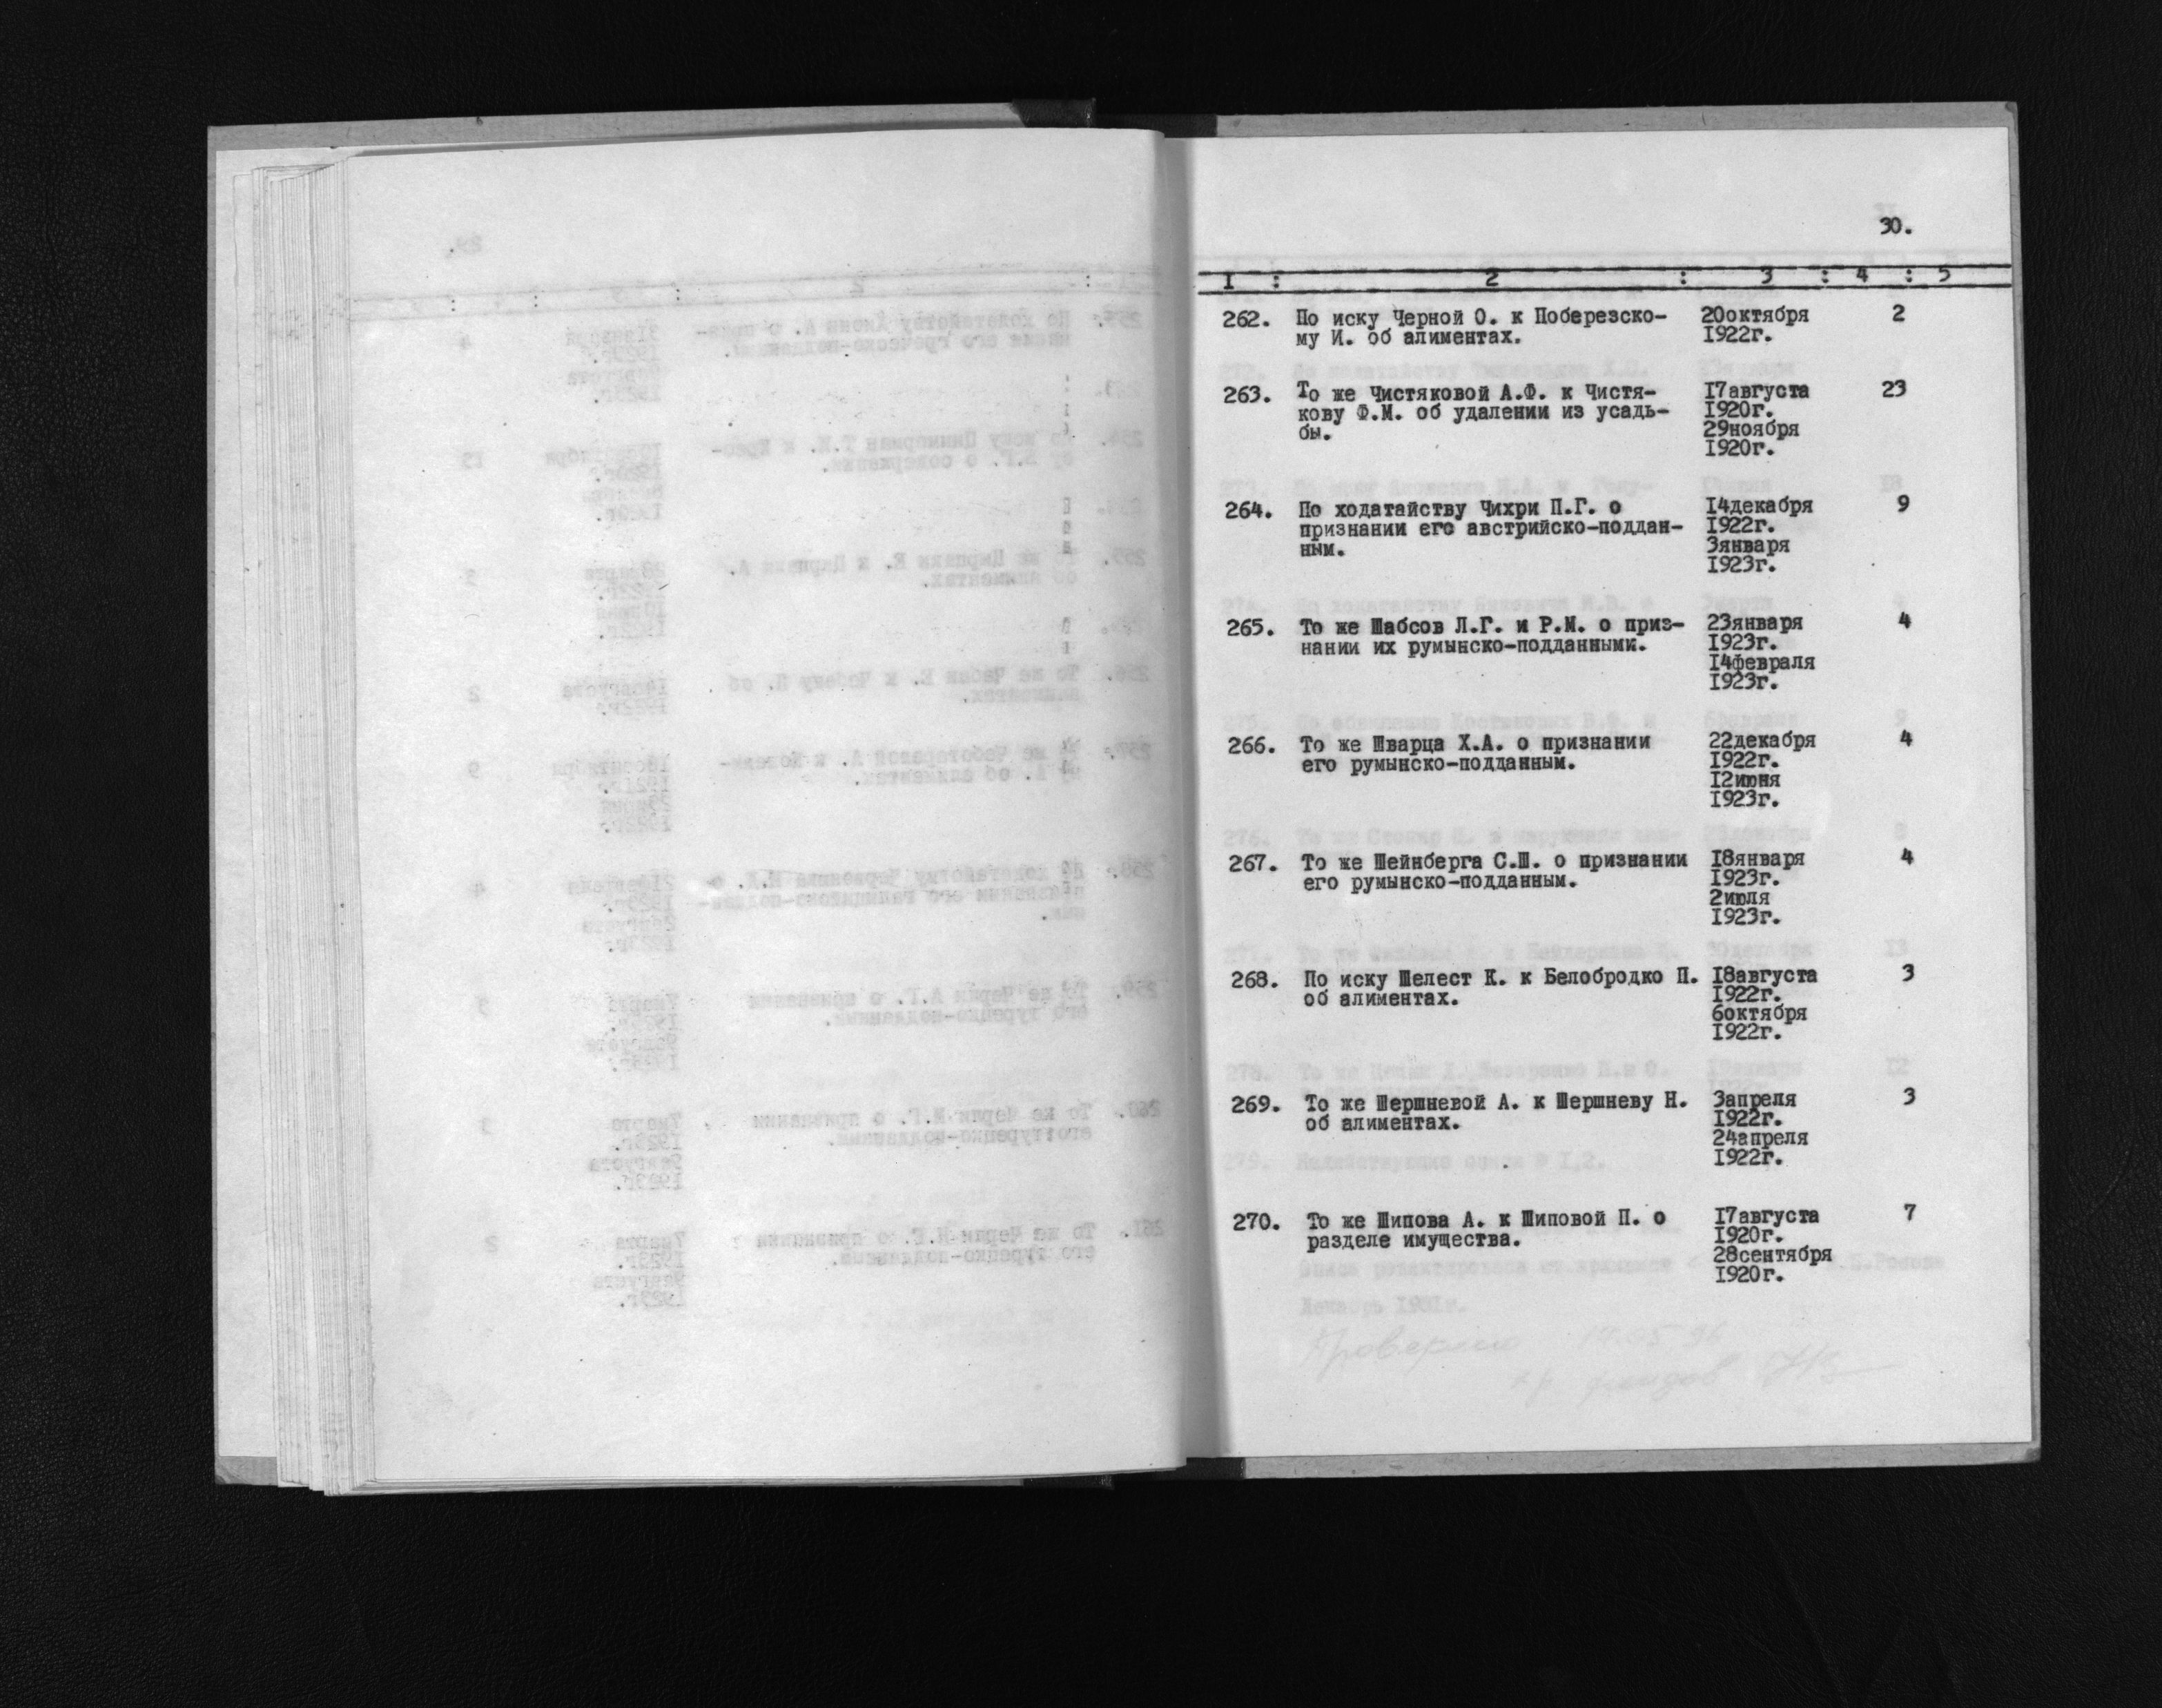 30.
I : 2 : 3 : 4 : 5
262. По иску Черной О. к Поберезско- 20октября 2
му И. об алиментах. 1922г.
263. То же Чистяковой А.Ф. к Чистя- 17августа 23
кову Ф.М. об удалении из усадь- 1920г.
бы. 29ноября
1920г.
264. По ходатайству Чихри П.Г. о 14декабря 9
признании его австрийско-поддан- 1922г.
ным. 3января
1923г.
265. То же Шабсов Л.Г. и Р.М. о приз- 23января 4
нании их румынско-подданными. 1923г.
14февраля
1923г.
266. То же Шварца Х.А. о признании 22декабря 4
его румынско-подданным. 1922г.
12июня
1923г.
267. То же Шейнберга С.Ш. о признании 18января 4
его румынско-подданным. 1923г.
2июля
1923г.
268. По иску Шелест К. к Белобродко П. 18августа 3
об алиментах. 1922г.
6октября
1922г.
269. То же Шершневой А. к Шершневу Н. 3апреля 3
об алиментах. 1922г.
24апреля
1922г.
270. То же Шипова А. к Шиповой П. о 17августа 7
разделе имущества. 1920г.
28сентября
1920г.